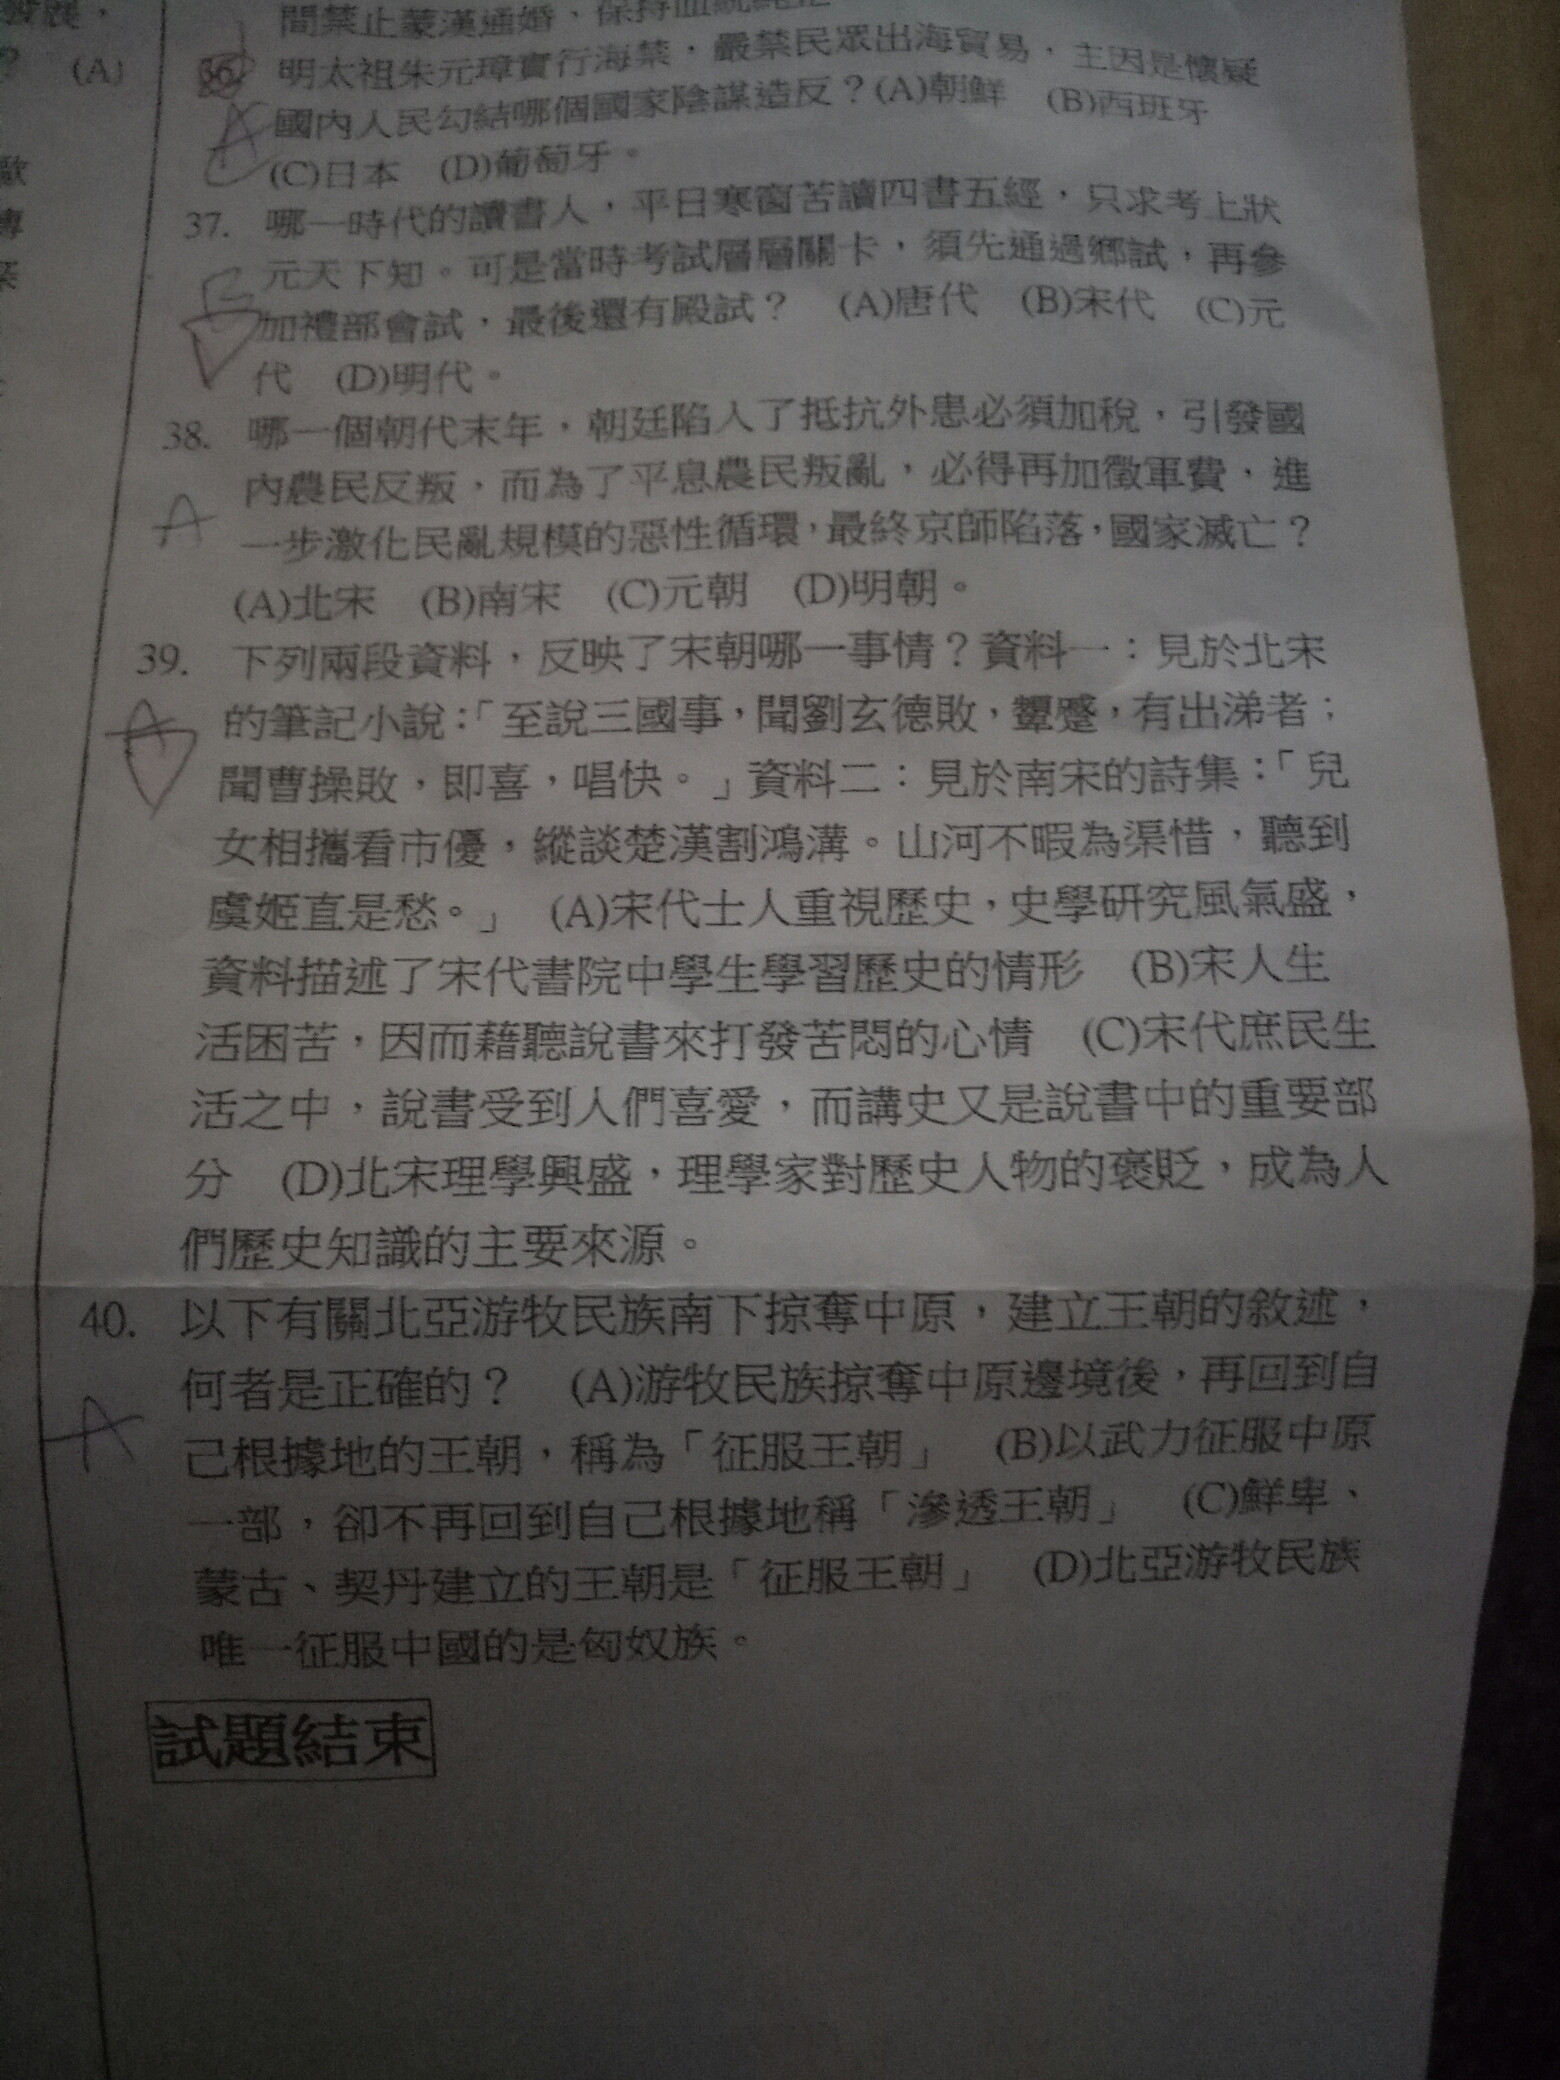 發展，
間禁止蒙漢通婚、保持血統純正
(A)
36. 明太祖朱元璋實行海禁，嚴禁民眾出海貿易，主因是懷疑
國內人民勾結哪個國家陰謀造反？(A)朝鮮 (B)西班牙
(C)日本 (D)葡萄牙。
A
37. 哪一時代的讀書人，平日寒窗苦讀四書五經，只求考上狀
元天下知。可是當時考試層層關卡，須先通過鄉試，再參
加禮部會試，最後還有殿試？ (A)唐代 (B)宋代 (C)元
代 (D)明代。
B
38. 哪一個朝代末年，朝廷陷入了抵抗外患必須加稅，引發國
內農民反叛，而為了平息農民叛亂，必得再加徵軍費，進
一步激化民亂規模的惡性循環，最終京師陷落，國家滅亡？
(A)北宋 (B)南宋 (C)元朝 (D)明朝。
A
39. 下列兩段資料，反映了宋朝哪一事情？資料一：見於北宋
的筆記小說：「至說三國事，聞劉玄德敗，顰蹙，有出涕者；
聞曹操敗，即喜，唱快。」資料二：見於南宋的詩集：「兒
女相攜看市優，縱談楚漢割鴻溝。山河不暇為渠惜，聽到
虞姬直是愁。」 (A)宋代士人重視歷史，史學研究風氣盛，
資料描述了宋代書院中學生學習歷史的情形 (B)宋人生
活困苦，因而藉聽說書來打發苦悶的心情 (C)宋代庶民生
活之中，說書受到人們喜愛，而講史又是說書中的重要部
分 (D)北宋理學興盛，理學家對歷史人物的褒貶，成為人
們歷史知識的主要來源。
A
40. 以下有關北亞游牧民族南下掠奪中原，建立王朝的敘述，
何者是正確的？ (A)游牧民族掠奪中原邊境後，再回到自
己根據地的王朝，稱為「征服王朝」 (B)以武力征服中原
一部，卻不再回到自己根據地稱「滲透王朝」 (C)鮮卑、
蒙古、契丹建立的王朝是「征服王朝」 (D)北亞游牧民族
唯一征服中國的是匈奴族。
A
試題結束